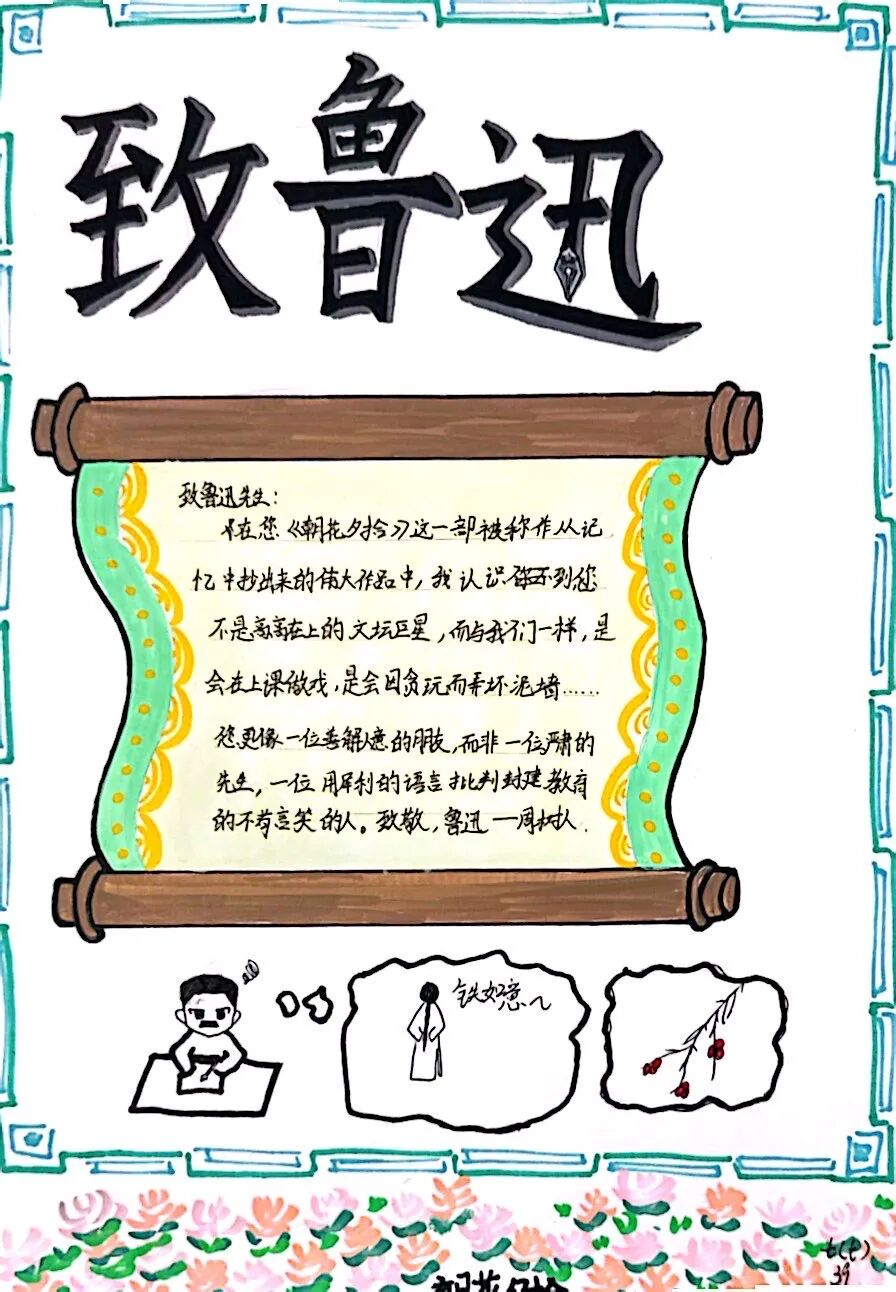 致鲁迅
致鲁迅先生：
在您《朝花夕拾》这一部被称作从记
忆中抄出来的伟大作品中，我认识到您
不是高高在上的文坛巨星，而与我们一样，是
会在上课做戏，是会因贪玩而弄坏泥墙……
您更像一位善解人意的朋友，而非一位严肃的
先生，一位用犀利的语言批判封建教育
的不苟言笑的人。致敬，鲁迅—周树人.
铁如意~
七(七)
39
朝花夕拾